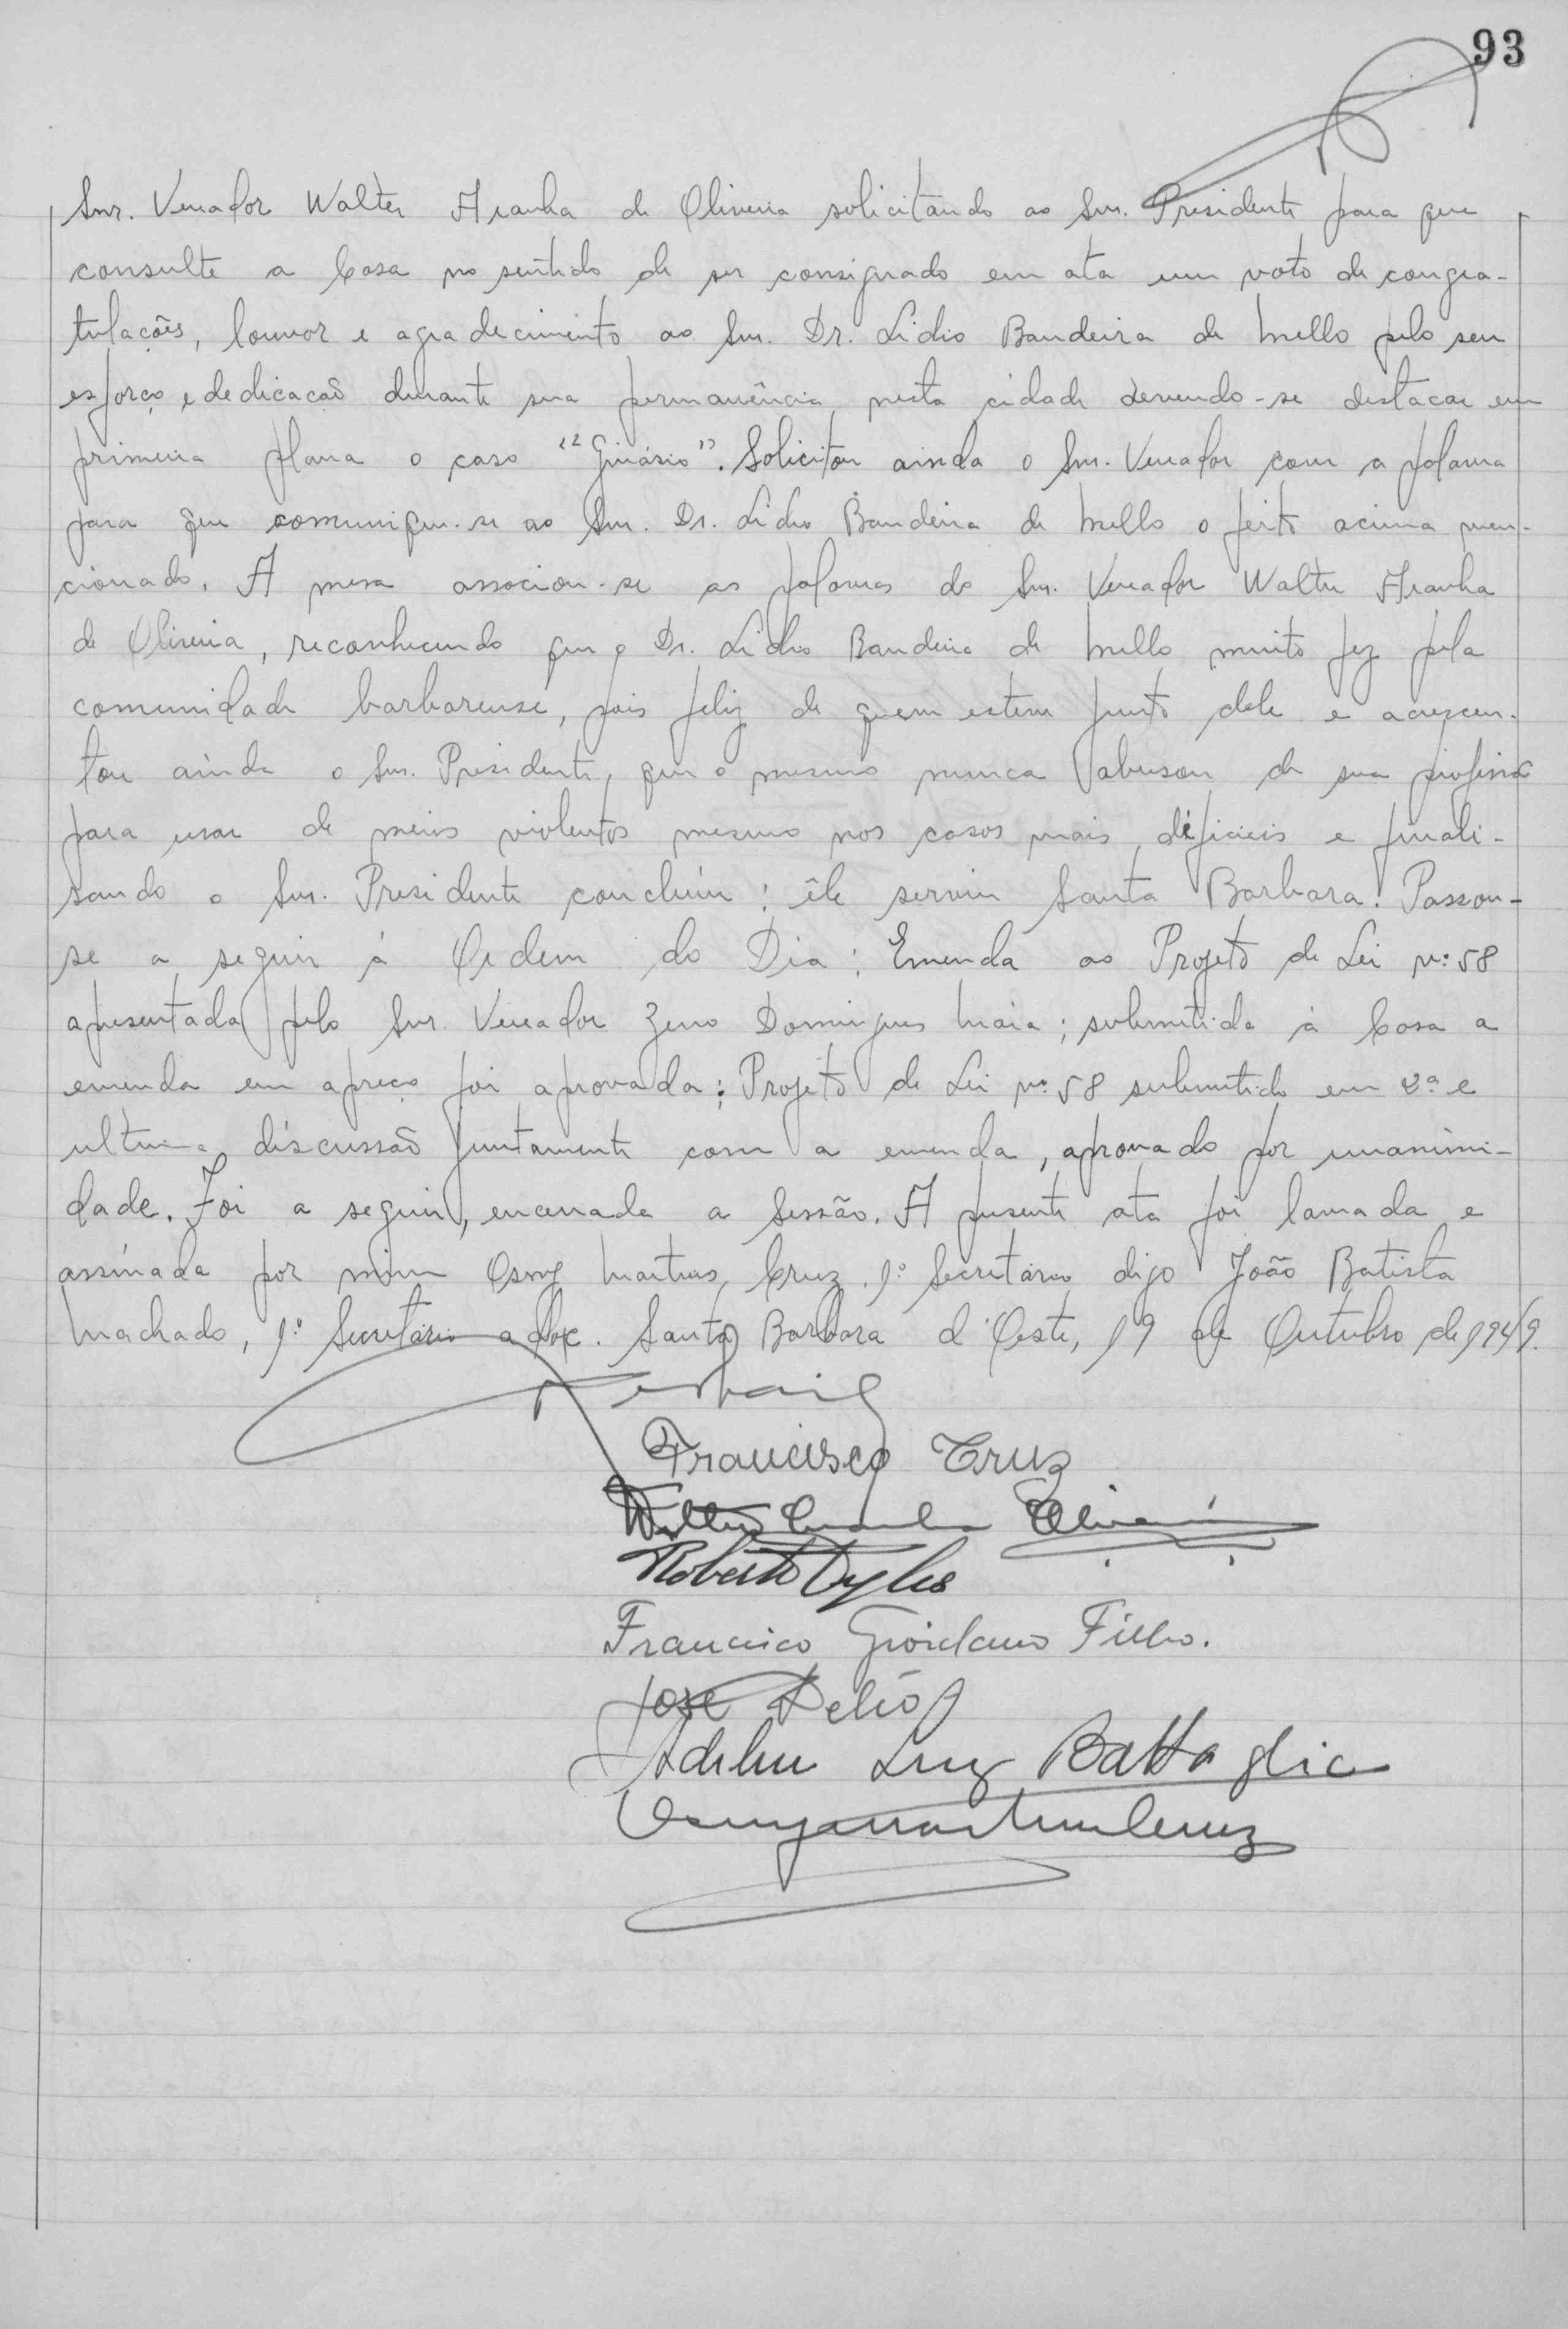 93
Snr. Vereador Walter Aranha de Oliveira solicitando ao Snr. Presidente para que
consulte a Casa no sentido de ser consignado em ata um voto de congra-
tulações, louvor e agradecimento ao Snr. Dr. Lidio Bandeira de Mello pelo seu
esforço e dedicação durante sua permanência nesta cidade devendo-se destacar em
primeira plana o caso "Ginásio". Solicitou ainda o Snr. Vereador com a palavra
para que comunique-se ao Snr. Dr. Lidio Bandeira de Mello o feito acima men-
cionado. A mesa associou-se as palavras do Snr. Vereador Walter Aranha
de Oliveira, reconhecendo que o Dr. Lidio Bandeira de Mello muito fez pela
comunidade barbarense, pois feliz de quem esteve junto dele e acrescen-
tou ainda o Snr. Presidente, que o mesmo nunca abusou de sua
para usar de meios violentos mesmo nos casos mais dificieis e finali-
sando o Snr. Presidente concluiu: êle serviu Santa Barbara! Passou-
se a seguir á Ordem do Dia: Emenda ao Projeto de Lei nº 58
apresentada pelo Snr. Vereador Zeno Domingues Maia; submetida à Casa a
emenda em apreço foi aprovada; Projeto de Lei nº 58 submetido em 2ª e
ultima discussão juntamente com a emenda, aprovado por unanimi-
dade. Foi a seguir, encerrada a Sessão. A presente ata foi lavrada e
assinada por mim Osmy Martins Cruz 1º Secretário digo João Batista
Machado, 1º Secretário adoc. Santa Barbara d'Oeste, 19 de Outubro de 1949.
Francisco Cruz
Walter Aranha Oliveira
Roberto
Francisco Giordano Filho.
José
Luiz Battaglia
Osmy Martins Cruz